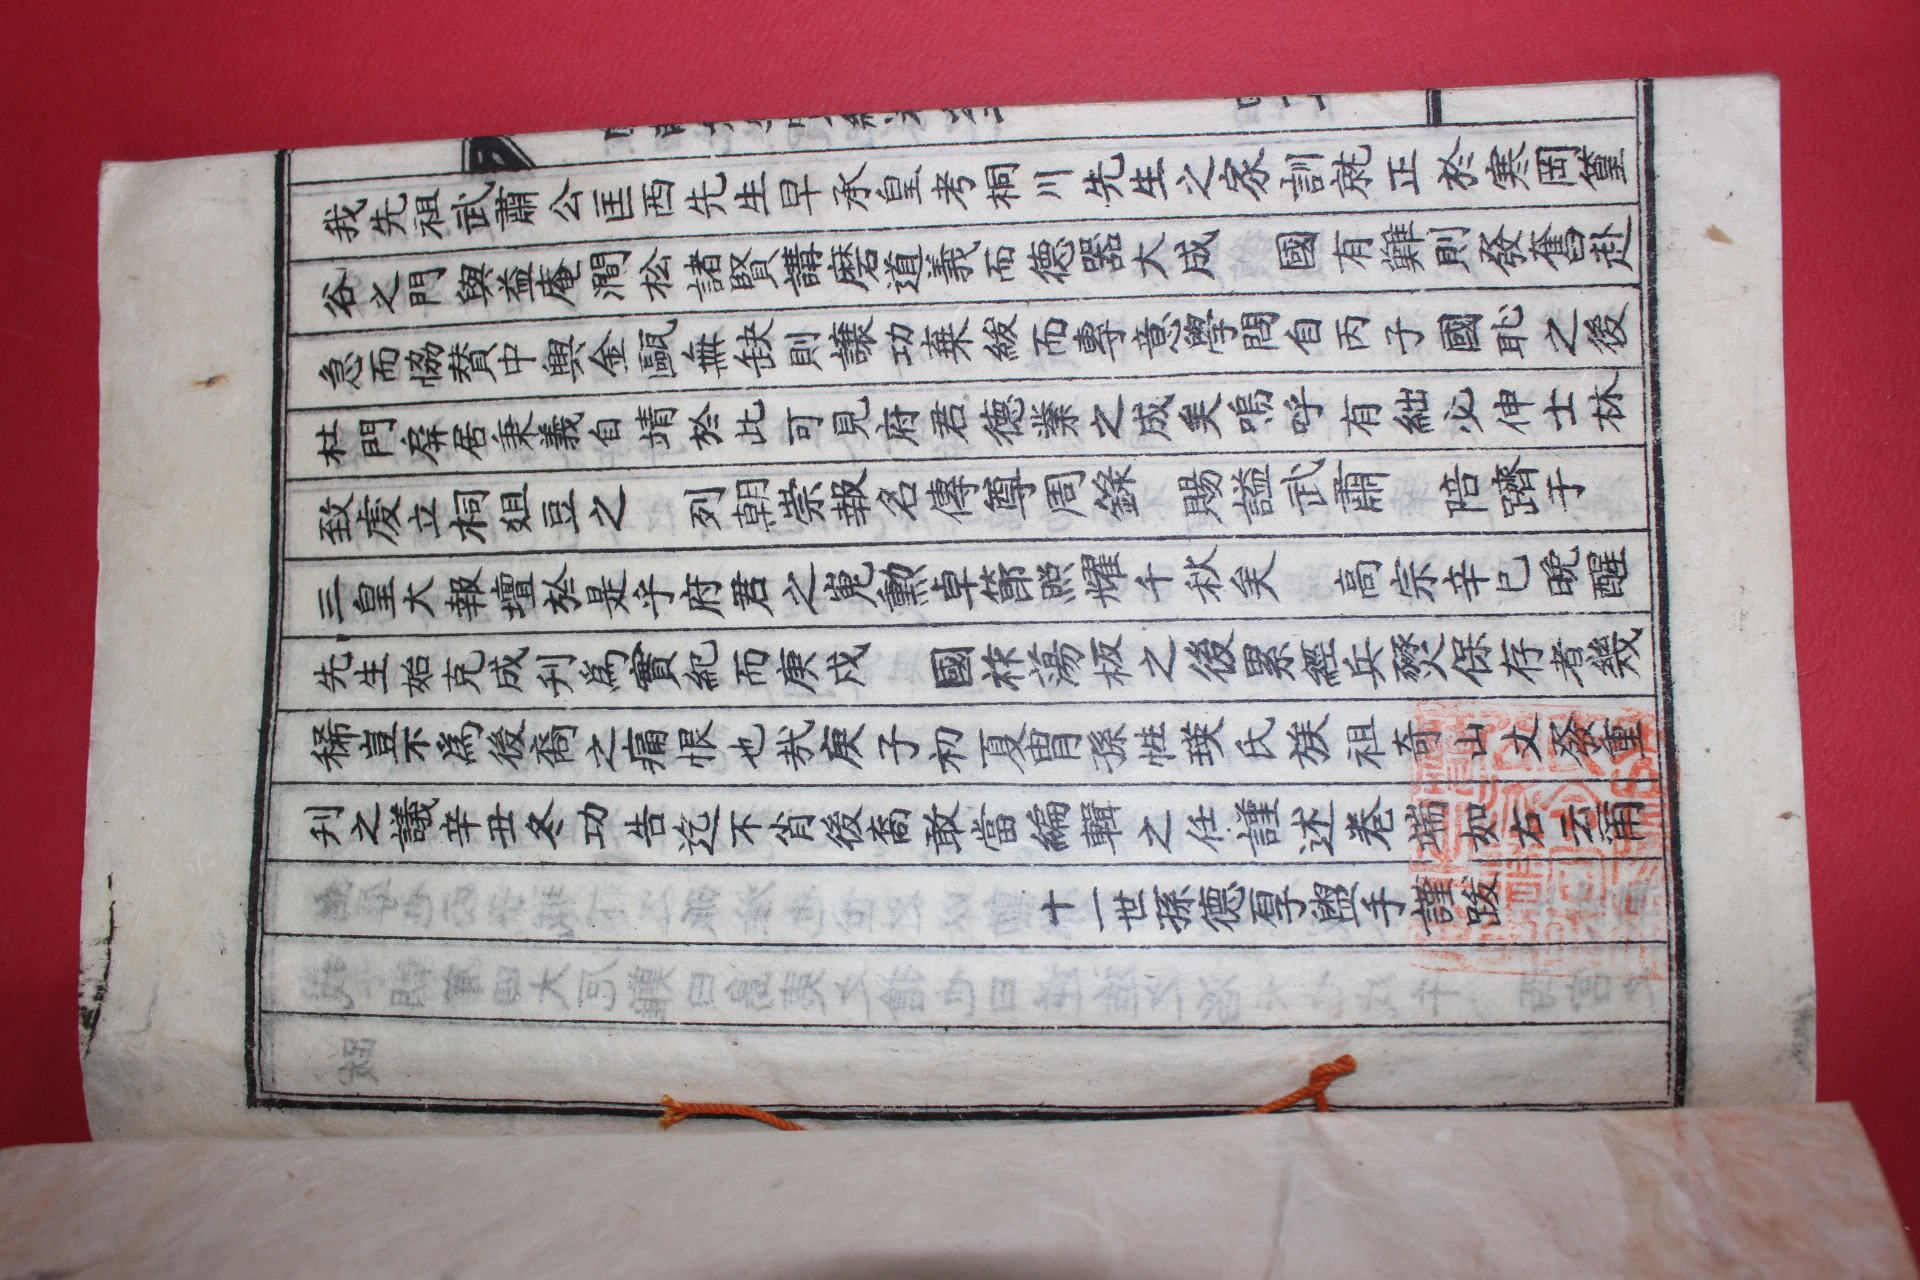 我先祖武肅公匡西先生早承皇考桐川先生之家訓就正於寒岡篁
谷之門與益庵澗松諸賢講磨道義而德器大成 國有難則發奮赴
急而恊賛中興金甌無缺則讓功棄紱而專意學問自丙子國恥之後
杜門屏居秉義自靖於此可見府君德業之成矣嗚呼有絀必伸士林
致虔立祠俎豆之 列朝崇報名傳尊周錄 賜謚武肅 陪躋于
三皇大報壇於是乎府君之嵬勳卓節照耀千秋矣 高宗辛巳晩醒
先生始克成刋爲實紀而庚戍 國祚蕩板之後累經兵燹保存者幾
稀豈不爲後裔之痛恨也㢤庚子初夏胄孫性瑛氏族祖奇山丈發重
刋之議辛丑冬功告迄不肖後裔敢當編輯之任謹述卷端如右云甭
十一世孫德厚盥手謹跋